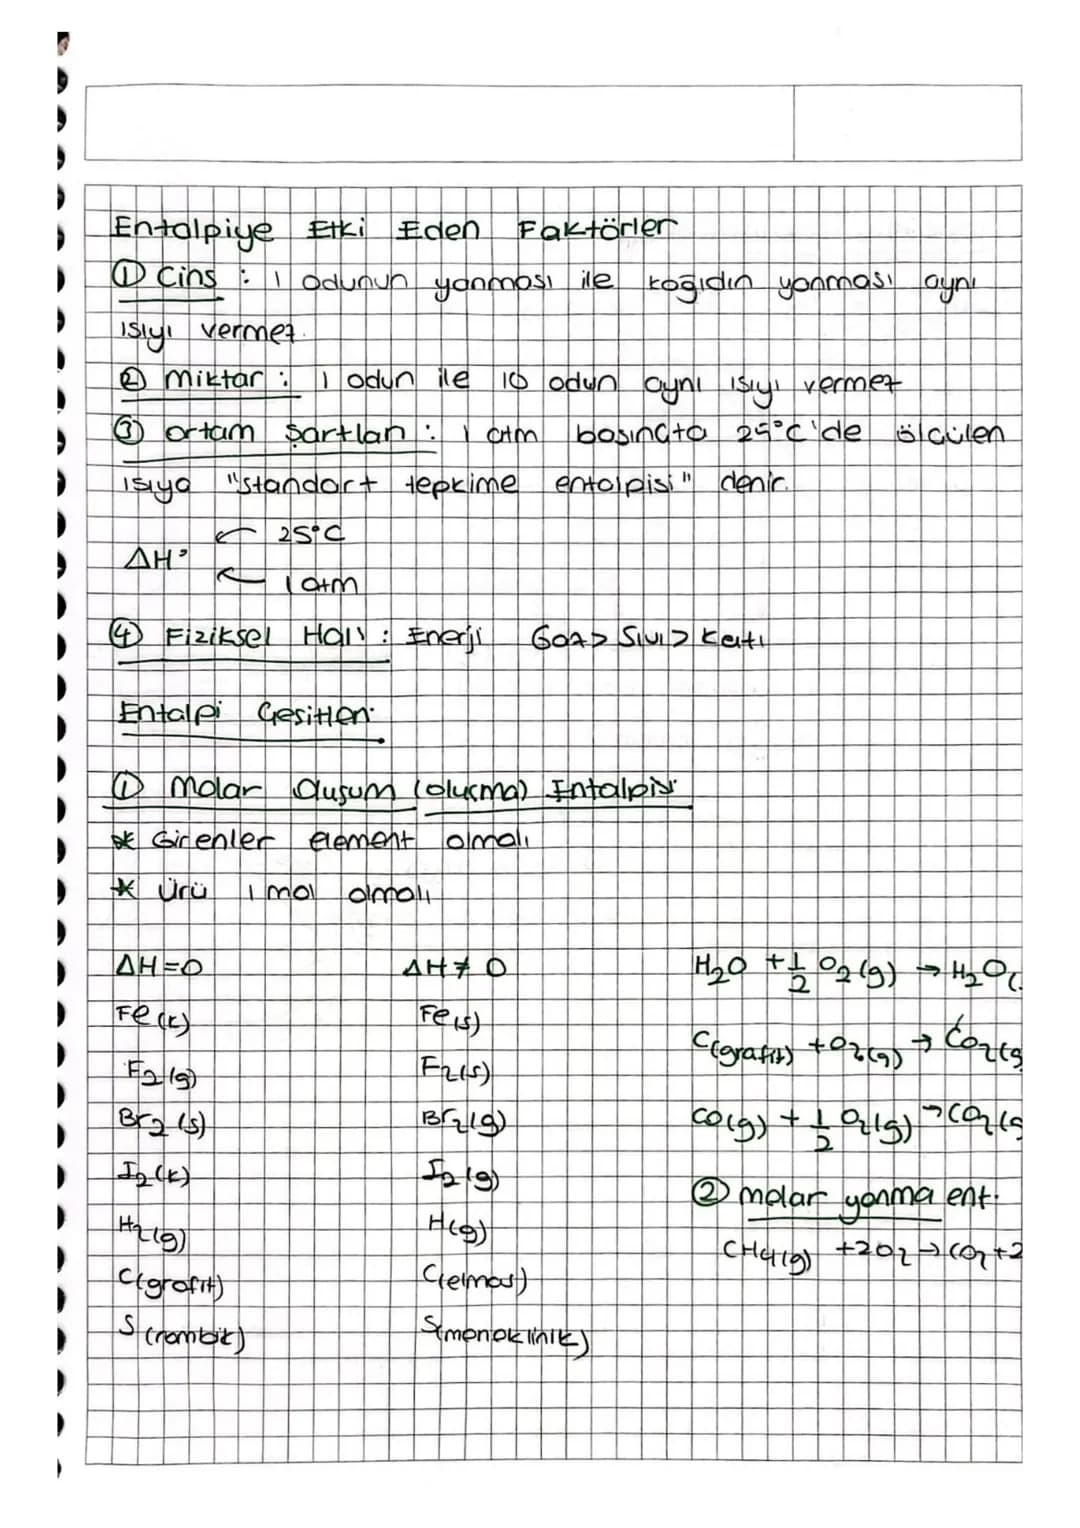 Entalpiye Etki Eden Faktörler
① Cins : 1 odunun yanması ile kağıdın yanması aynı
ısıyı vermez.
② Miktar : 1 odun ile 10 odun aynı ısıyı vermez
③ Ortam Şartları : 1 atm basınçta 25°C'de ölçülen
ısıya "standart tepkime entalpisi" denir.
25°C
ΔH°
1 atm
④ Fiziksel Hali : Enerji Gaz > Sıvı > Katı
Entalpi Çeşitleri
① Molar Oluşum (oluşma) Entalpisi
* Girenler element olmalı
* Ürü 1 mol olmalı
ΔH=0 ΔH≠0
Fe(k) Fe(s)
F₂(g) F₂(s)
Br₂(s) Br₂(g)
I₂(k) I₂(g)
H₂(g) H(g)
C(grafit) C(elmas)
S(rombik) S(monoklinik)
H₂O + 1/2 O₂(g) → H₂O(
C(grafit) + O₂(g) → CO₂(g
CO(g) + 1/2 O₂(g) → CO₂(g
② molar yanma ent.
CH₄(g) + 2O₂ → CO₂ + 2